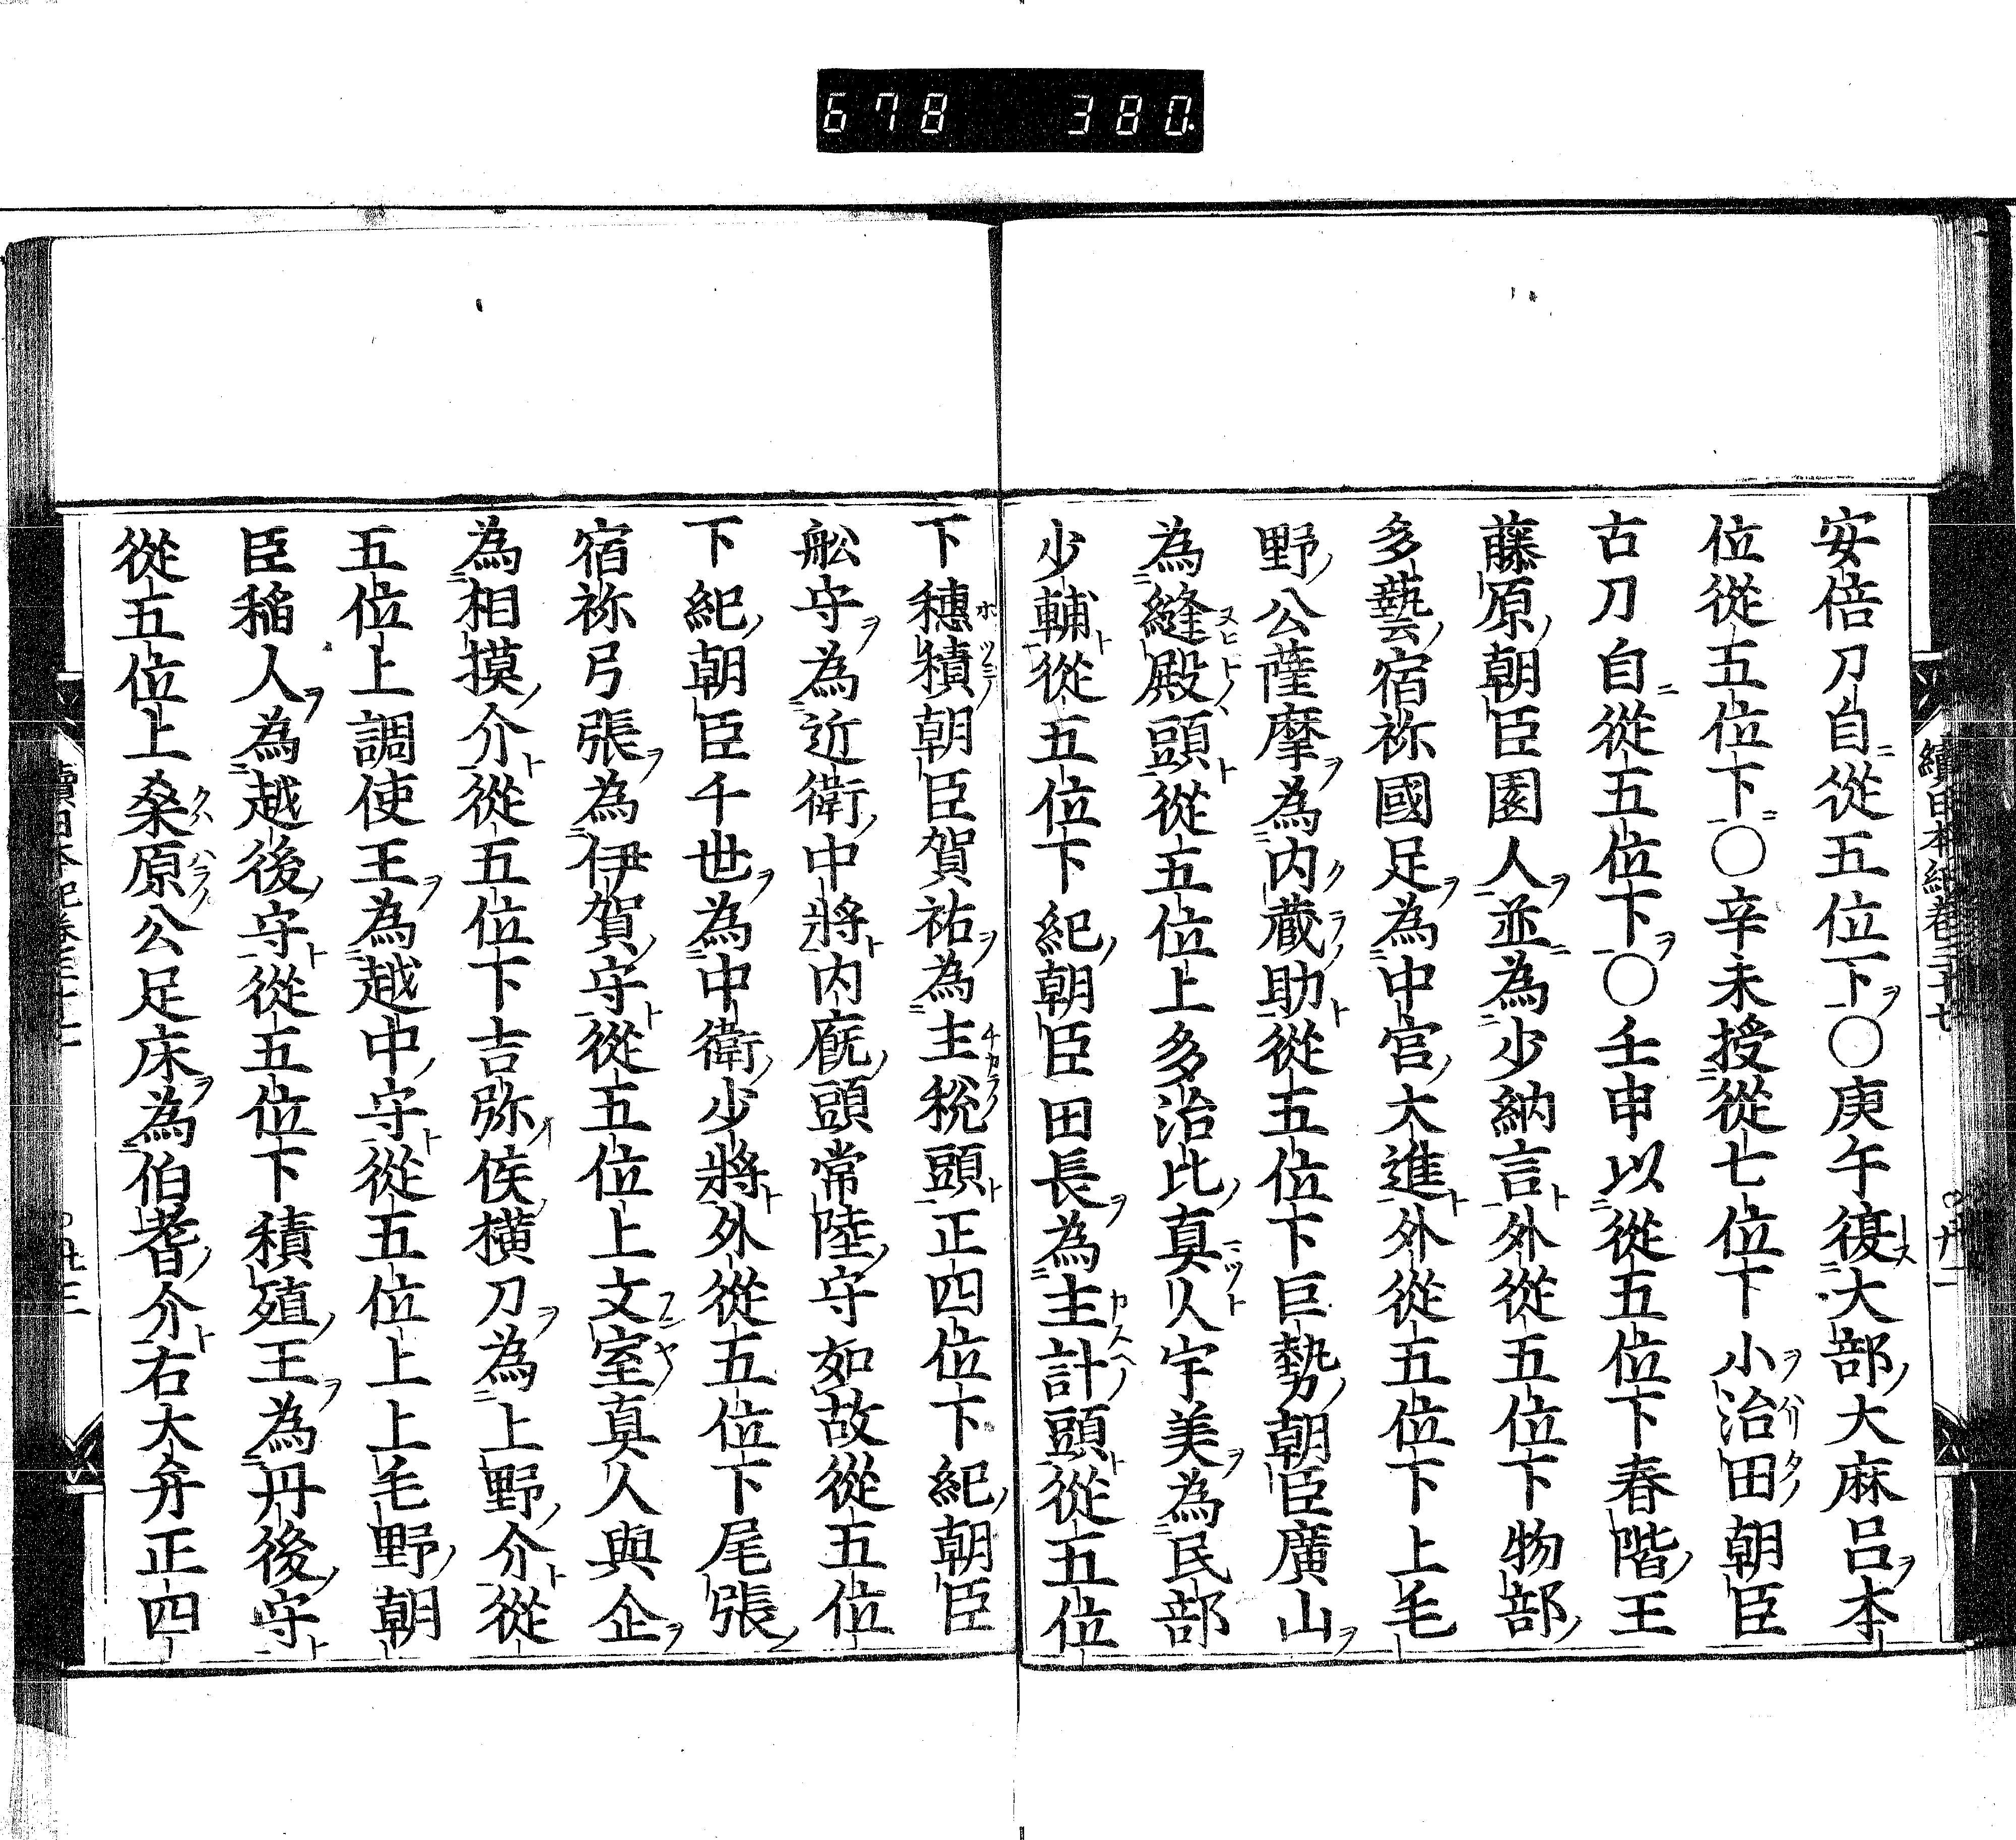 678 380
安倍刀自從五位下〇庚午復大部大麻呂本
位從五位下〇辛未授從七位下小治田朝臣
古刀自從五位下〇壬申以從五位下春階王
藤原朝臣園人並為少納言外從五位下物部
多藝宿祢國足為中宮大進外從五位下上毛
野公薩摩為内蔵助從五位下巨勢朝臣廣山
為縫殿頭從五位上多治比真人宇美為民部
少輔從五位下紀朝臣田長為主計頭從五位
下穗積朝臣賀祐為主税頭正四位下紀朝臣
舩守為近衛中將内廐頭常陸守如故從五位
下紀朝臣千世為中衛少將外從五位下尾張
宿祢弓張為伊賀守從五位上文室真人與企
為相摸介從五位下吉弥侯横刀為上野介從
五位上調使王為越中守從五位上上毛野朝
臣稲人為越後守從五位下積殖王為丹後守
從五位上桒原公足床為伯耆介右大弁正四